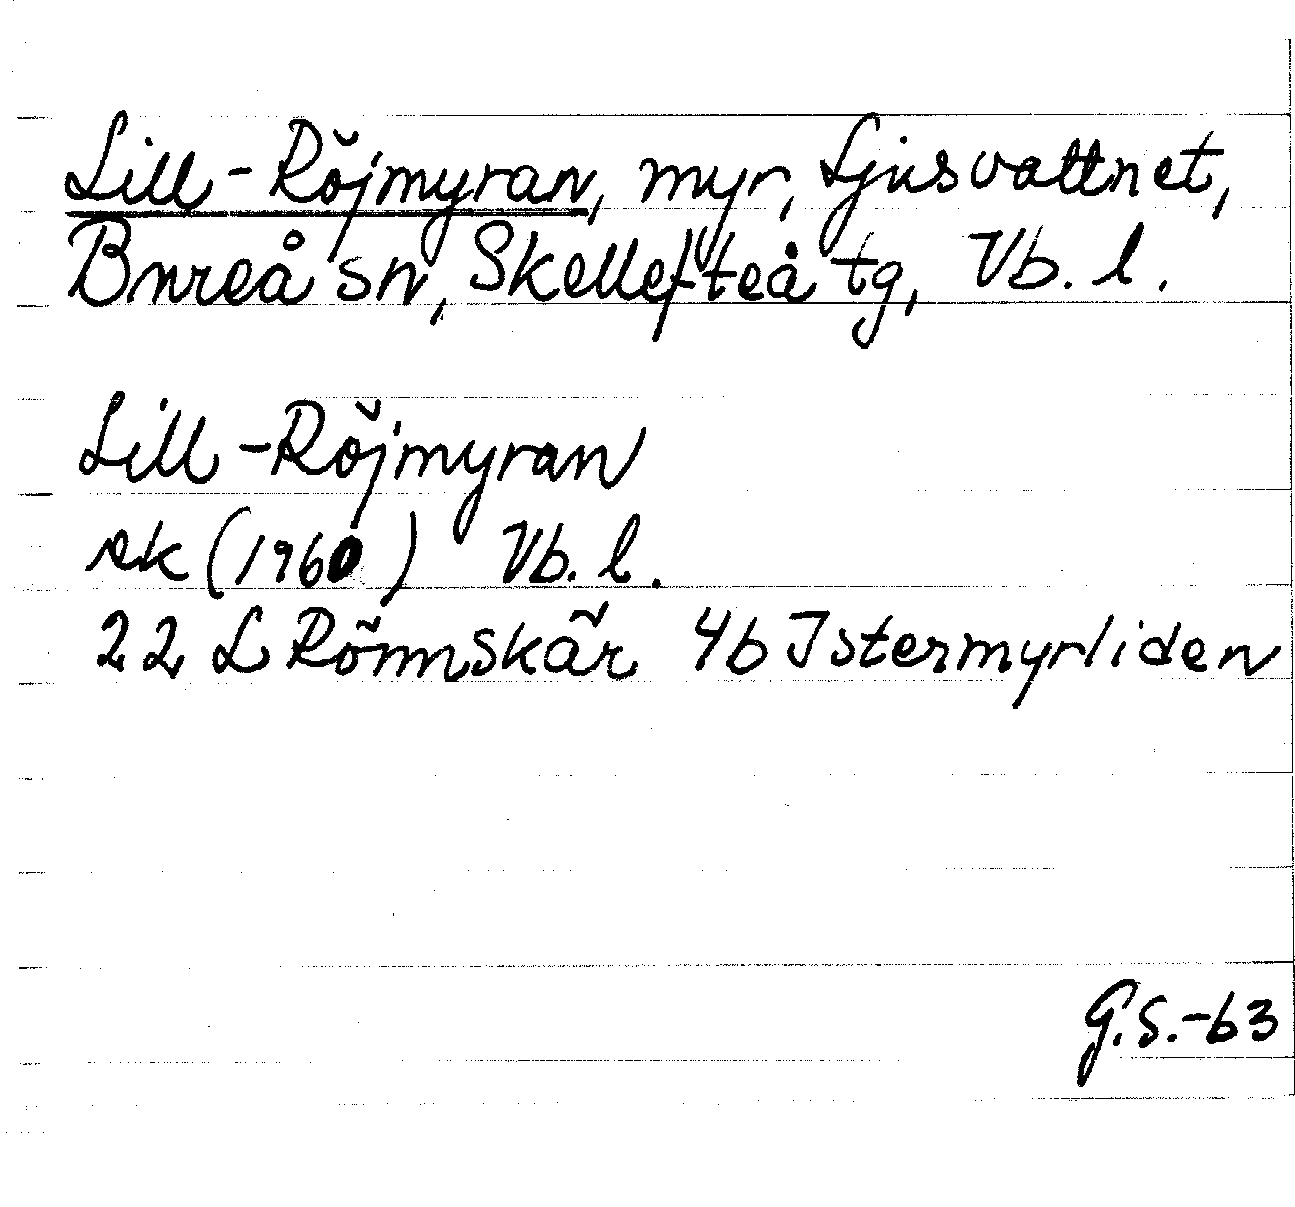 Lill-Röjmyran, myr, Ljusvattnet,
Bureå sn, Skellefteå tg, Vb. l.
Lill-Röjmyran
ek (1960) Vb. l.
22 L Rönnskär 4b Istermyrliden
G.S.-63